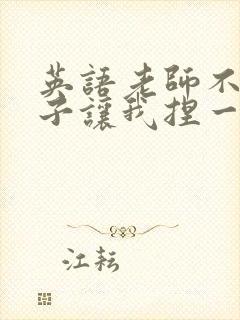 英語老師不
子讓我捏一
江耘